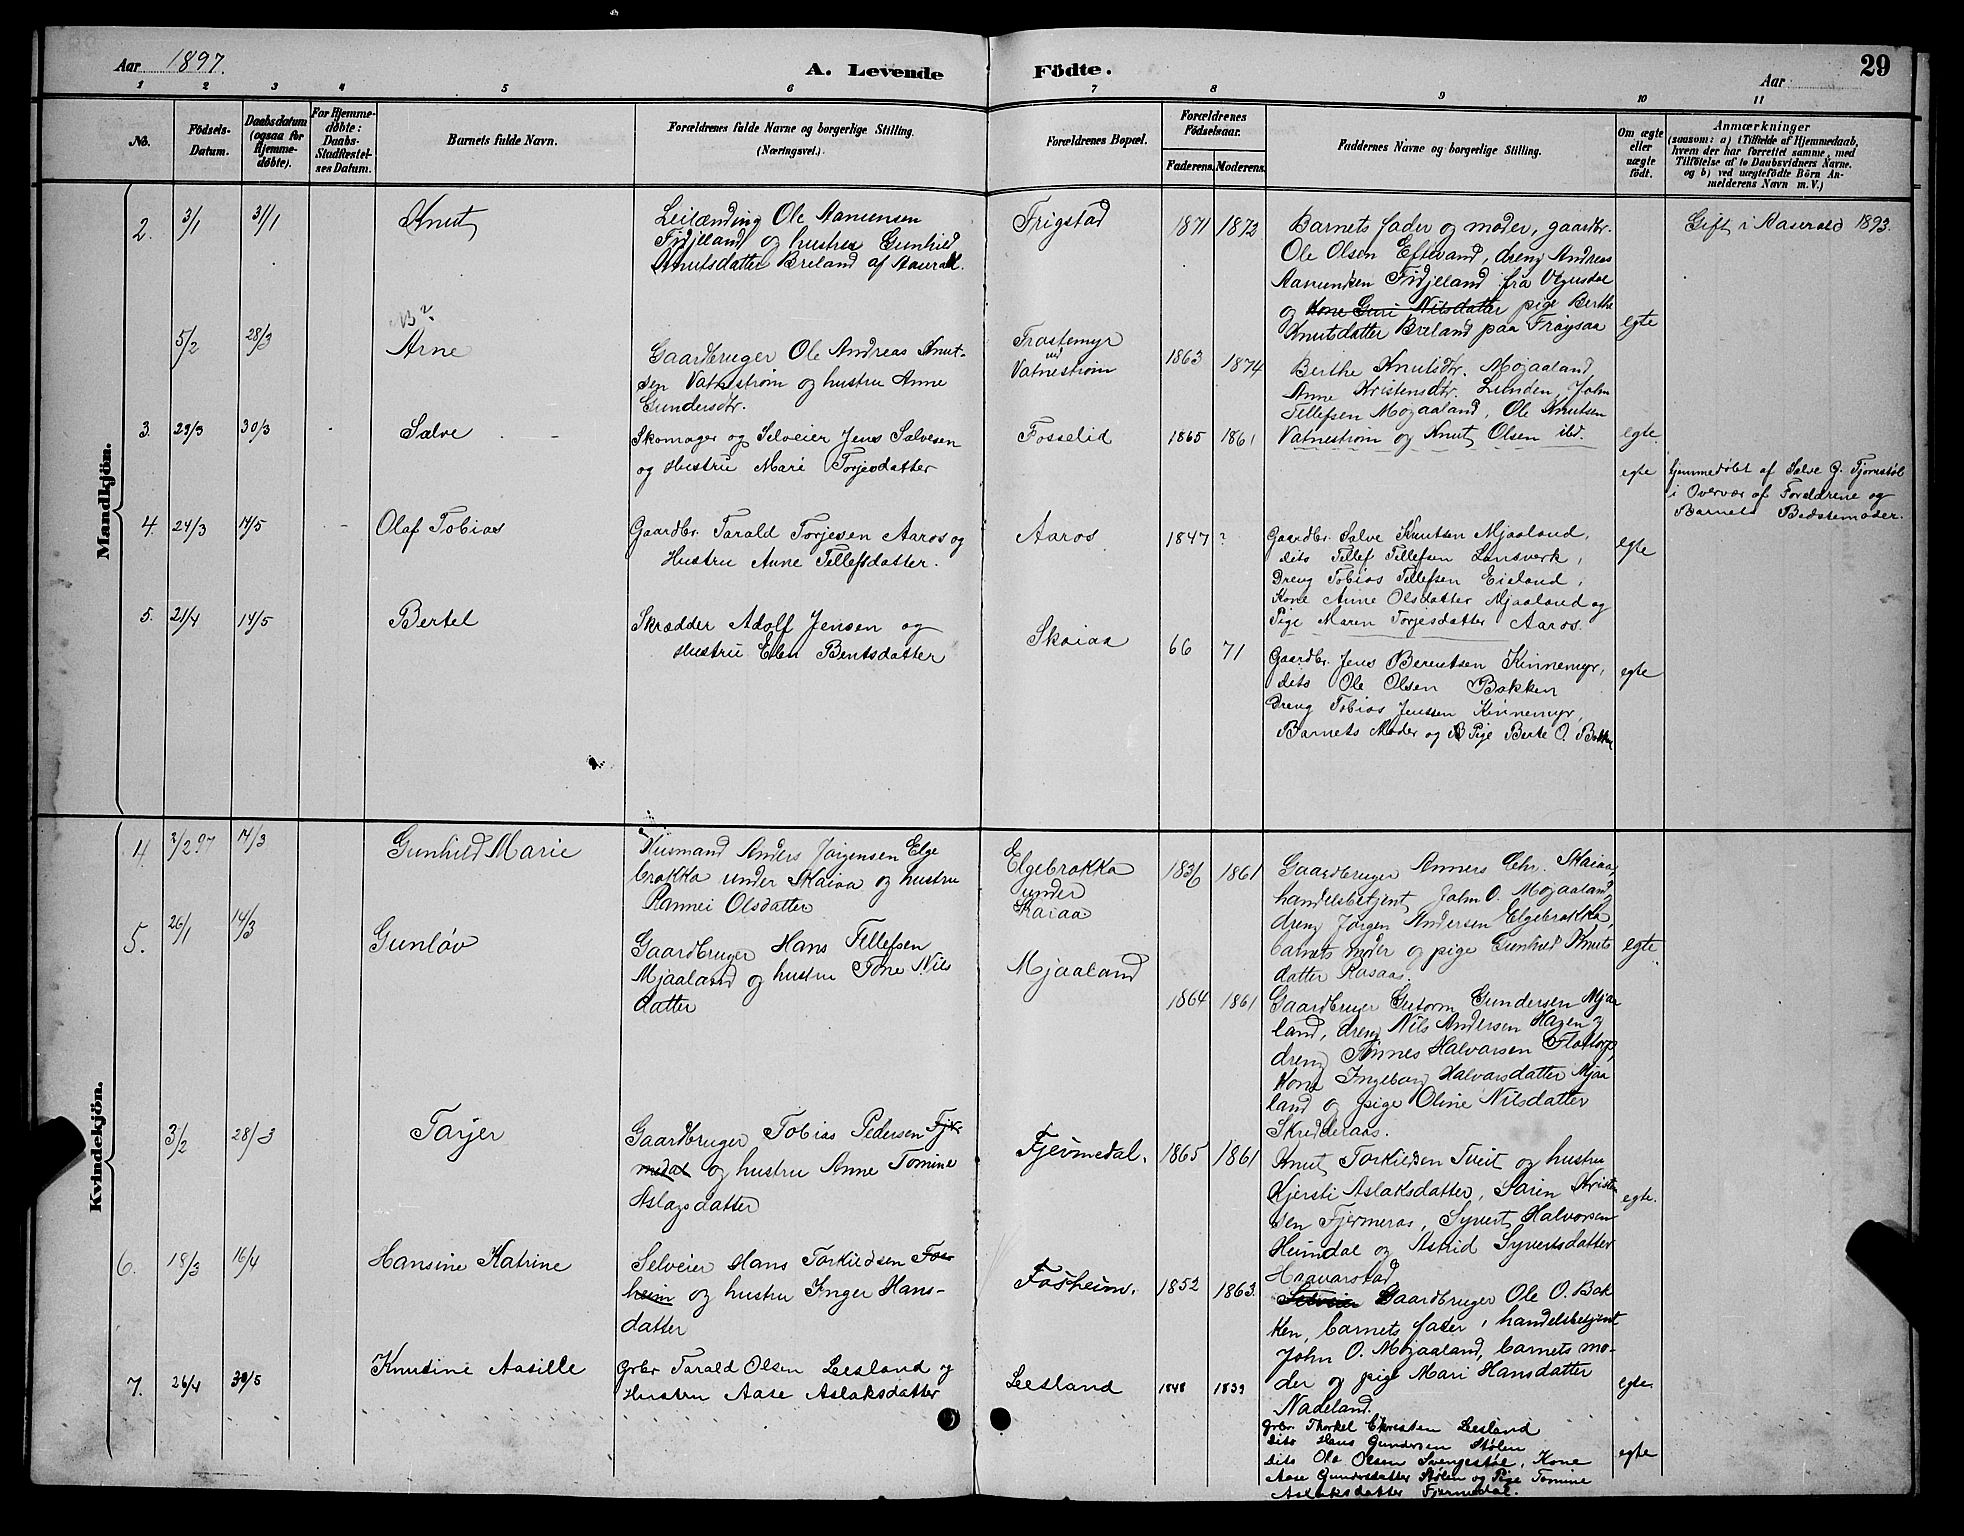 Aar 1897.
A. Levende Födte.
Aar
29
1 2 3 4 5 6 7 8 9 10 11
No.
Födsels-Datum.
Daabsdatum (ogsaa for Hjemme-døbte).
For Hjemme-døbte: Daabs-Stadfæstel-ses Datum.
Barnets fulde Navn.
Forældrenes fulde Navne og borgerlige Stilling. (Næringsvei.)
Forældrenes Bopæl.
Forældrenes Födselsaar.
Faderens. Moderens.
Faddernes Navne og borgerlige Stilling.
Om ægte eller uægte födt.
Anmærkninger
(saasom: a) i Tilfælde af Hjemmedaab, hvem der har forrettet samme, med Tilføielse af to Daabsvidners Navne. og b) ved uægtefødte Börn An-melderens Navn m. V.)
Mandkjön.
2. 3/1 31/1 Knut
Leilænding Ole Aanensen
Fidjeland og hustru Gunhild
Knutsdatter Breland af Aaseral.
Frigstad 1871 1872
Barnets fader og moder, gaardbr.
Ole Olsen Eftevand, dreng Andreas
Aanensen Fidjeland fra Vegusdal
og Kone Guri Nilsdatter pige Berthe
Knutsdatter Breland paa Frøysaa
egte
Gift i Aaserald 1893.
B?
5/2 28/3 Arne
Gaardbruger Ole Andreas Knut-
sen Vatnestrøm og hustru Anne
Gundersdtr.
Frostemyr
ved
Vatnestrøm
1863 1874
Berthe Knutsdtr. Mojaaland
Anne Kristensdtr. Lunden, John
Tellefsen Mojaaland, Ole Knutsen
Vatnestrøm og Knut Olsen ibd.
egte
3. 29/3 30/3 Salve
Skomager og Selveier Jens Salvesen
og Hustru Mari Torjesdatter
Fosselid 1865 1861
egte
hjemmedøbt af Salve G. Tjorestøl
i Overvær af Forældrene og
Barnets Bedstemoder.
4. 24/3 14/5 Olaf Tobias
Gaardbr. Tarald Torjesen Aaros og
Hustru Anne Tellefsdatter.
Aaros 1847 ?
Gaardbr. Salve Knutsen Mjaaland,
dito Tellef Tellefsen Lansverk,
Dreng Tobias Tellefsen Eieland,
Kone Anne Olsdatter Mjaaland og
Pige Maren Torjesdatter Aaros.
egte
5. 21/4 14/5 Bertel
Skrædder Adolf Jensen og
Hustru Elen Bentsdatter
Skaiaa 66 71
Gaardbr. Jens Berentsen Kinnemyr,
dito Ole Olsen Bakken
Dreng Tobias Jenssen Kinnemyr,
Barnets Moder og Pige Berte O. Bakken
egte
Kvindekjön.
4 2/2 97 14/3 Gunhild Marie
Husmand Anders Jørgensen Elge
brokka under Skaiaa og hustru
Rannei Olsdatter
Elgebrokka
under
Skaiaa
1836 1861
Gaardbruger Anners Chr. Skaiaa,
handelsbetjent John O. Mojaaland,
dreng Jørgen Andersen Elgebrokka,
barnets moder og pige Gunhild Knuts
datter Rosaas.
egte
5. 26/1 14/3 Gunløv
Gaardbruger Hans Tellefsen
Mjaaland og hustru Tone Nils
datter
Mjaaland
1864 1861
Gaardbruger Gutorm Gundersen Mjaa
land, dreng Nils Andersen Hagen og
dreng Tønnes Halvorsen Flottorp,
Kone Ingeborg Halvarsdatter Mjaa
land og pige Oline Nilsdatter
Skredderaas.
3/2 28/3 Tarjer
Gaardbruger Tobias Pedersen Fjer-
medal og hustru Anne Tomine
Aslagsdatter
Fjermedal. 1865 1861
Knut Torkildsen Tveit og hustru
Kjersti Aslaksdatter, Søren Kristen
sen Fjermeros, Syvert Halvorsen
Heimdal og Astrid Syvertsdatter
Haavarstad
egte.
6. 18/3 16/4 Hansine Katrine
Selveier Hans Torkildsen Fos-
heim og hustru Inger Hans-
datter
Fosheim. 1852 1863.
Selveier Gaardbruger Ole O. Bak
ken, barnets fader, handelsbetjent
John O. Mojaaland, barnets mo-
der og pige Mari Hansdatter
Nadeland.
egte.
7. 26/4 30/5 Knudine Aasille
Grbr Tarald Olsen Lesland og
Hustru Aase Aslaksdatter
Lesland 1848 1839
Grbr. Thorkel Christen Lesland
dito Hans Gundersen Stølen
dito Ole Olsen Svengestøl, Kone
Aase Gundersdatter Stølen og Pige Tomine
Aslaksdatter Fjermedal.
egte